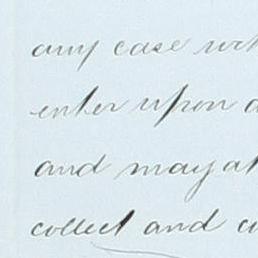 any case wit
enter upon a
and may at
collect and